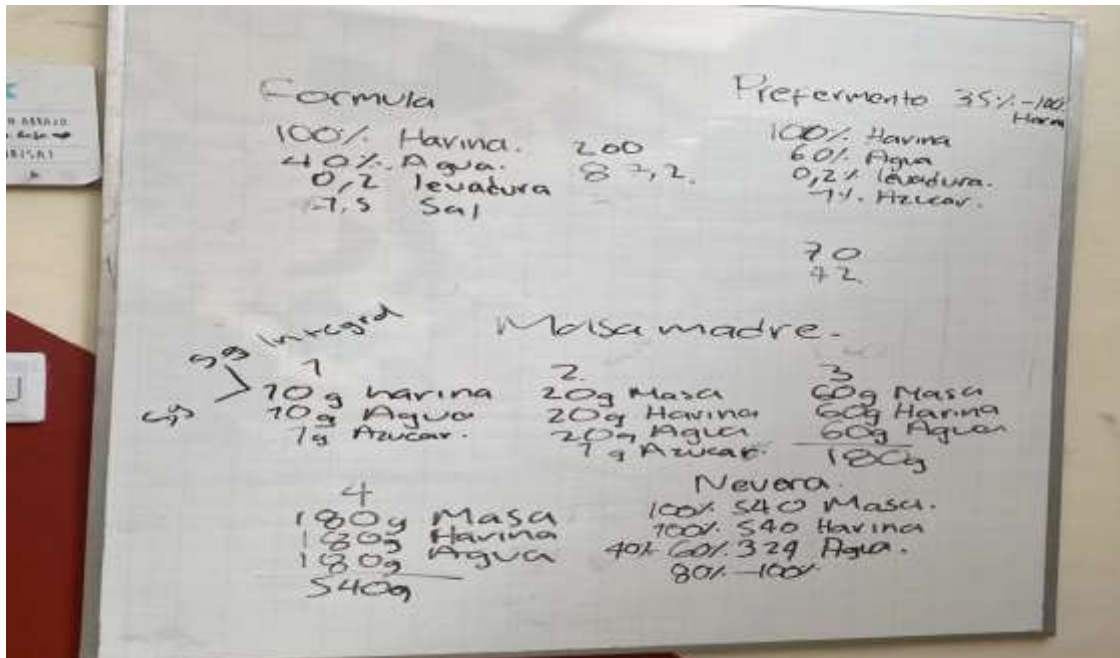 Formula
100% Harina. 200
40% Agua. 87,2.
0,2 levadura
1,5 Sal
Prefermento 35% -100%
Harina
100% Harina
60% Agua
0,2% levadura.
1% Azucar.
70
42
Masa madre.
5g Integral
5g
1
10g harina
10g Agua
1g Azucar.
2.
20g Masa
20g Harina
20g Agua
1g Azucar.
3
60g Masa
60g Harina
60g Agua
180g
4
180g Masa
180g Harina
180g Agua
540g
Nevera.
100% 540 Masa.
100% 540 Harina
40% 60% 324 Agua.
80% -100%